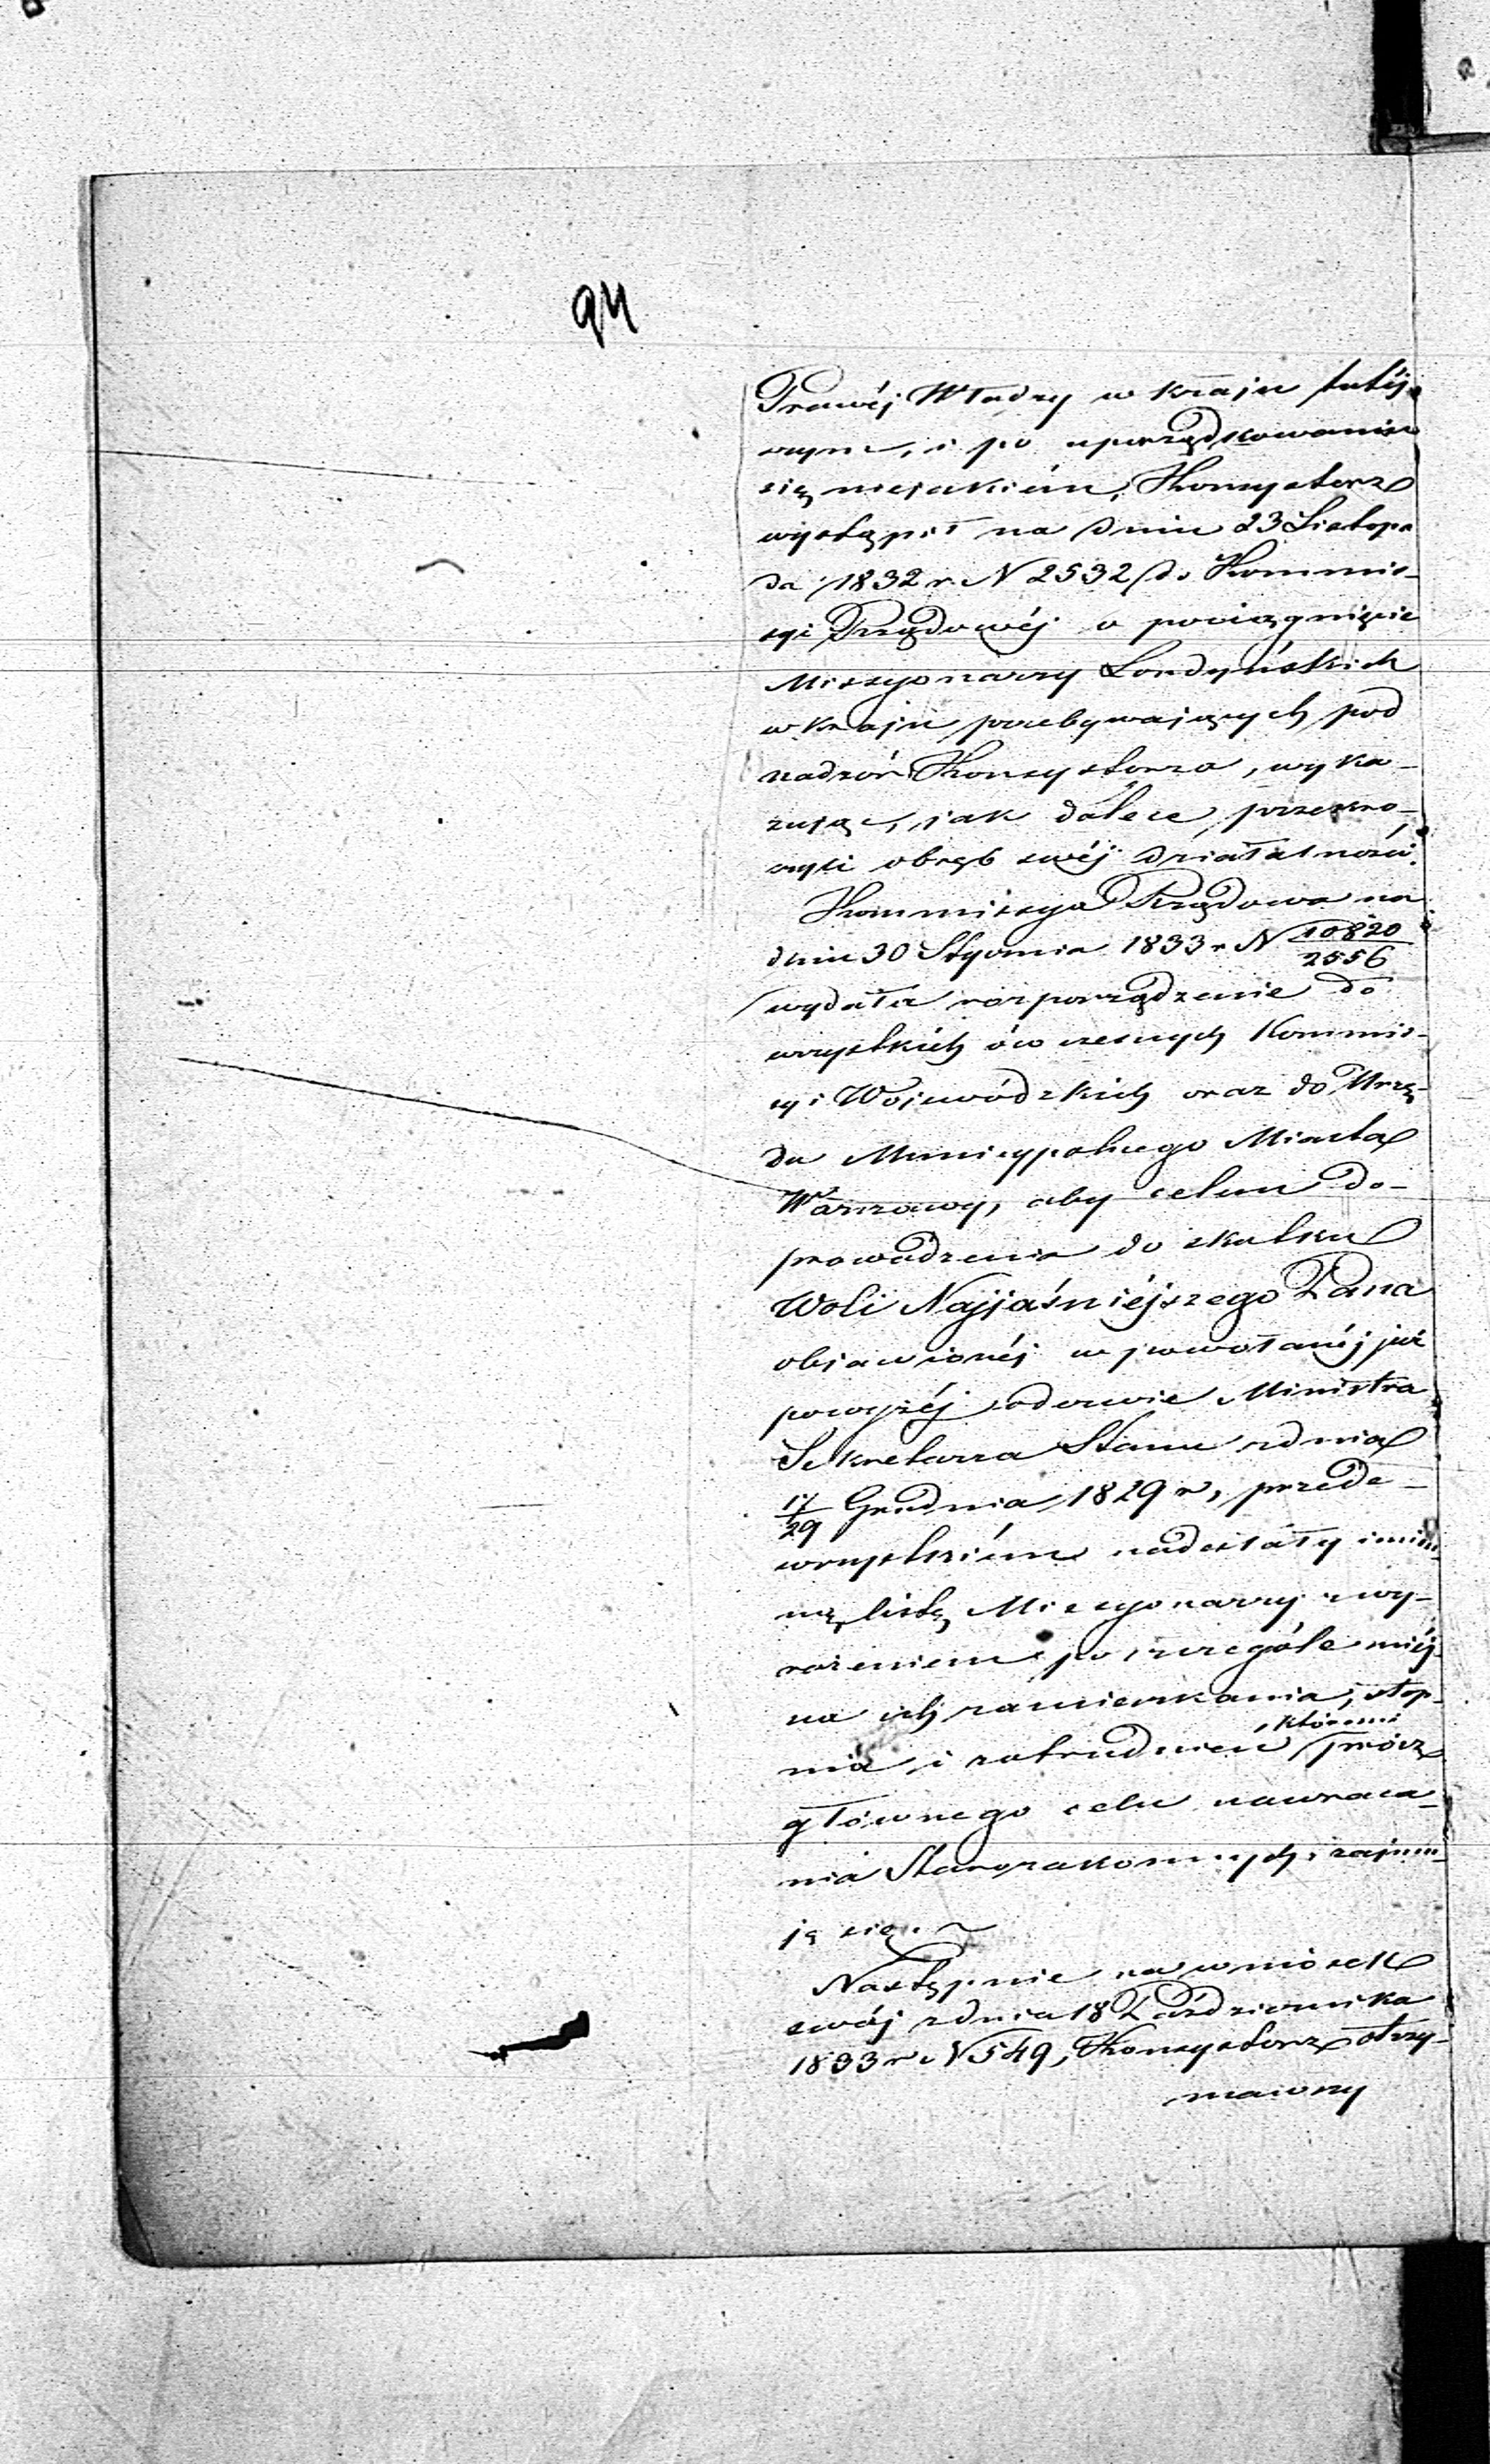 94
Prawéj Władzy w kraju tutéj-
szym, i po uporządkowaniu
się niejakiém, Konsystorz
wystąpił na dniu 23 Listopa
da 1832 r. N 2532 do Kommis-
syi Rządowéj o pociągnięcie
Missyonarzy Londyńskich
w kraju przebywających pod
nadzór Konsystorza, wyka-
zując, jak dalece przekro-
czyli obręb swéj działalności.
Kommissya Rządowa na
dniu 30 Stycznia 1833 r N 10820/2556
wydała rozporządzenie do
wszystkich ówczesnych Kommis-
syi Wojewódzkich oraz do Urzę-
du Municypalnego Miasta
Warszawy, aby celem do-
prowadzenia do skutku
Woli Najjaśniéjszego Pana
objawionéj w powołanéj już
powyżéj odezwie Ministra
Sekretarza Stanu z dnia
17/29 Grudnia 1829 r, przede-
wszystkiém nadesłały imien-
ną listę Missyonarzy z wy-
rażeniem po szczególe miéj-
sca ich zamieszkania, stop-
nia i zatrudnień, któremi prócz
głównego celu nawraca-
nia Starozakonnych, zajmu-
ją się.
Następnie na wniosek
swój z dnia 18 Października
1833 r N 549, Konsystorz otrzy-
mawszy